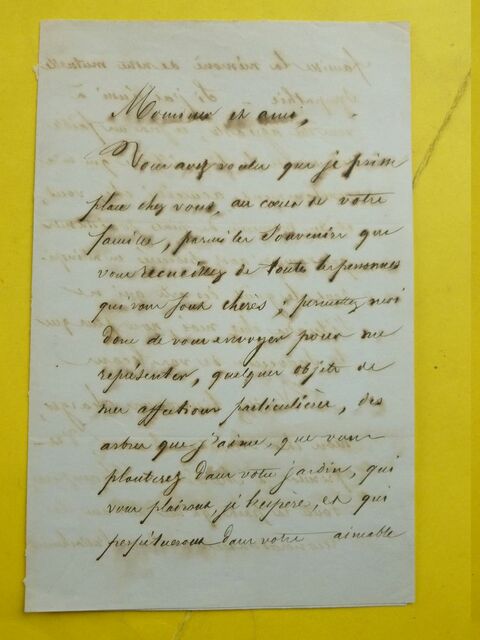 Monsieur et ami,
Vous avez voulu que je prisse
place chez vous, au cœur de votre
famille, parmi les souvenirs que
vous recueillez de toutes les personnes
qui vous sont chères ; permettez moi
donc de vous envoyer pour me
représenter, quelques objets de
mes affections particulières, des
arbres que j'aime, que vous
planterez dans votre jardin, qui
vous plairont, je l'espère, et qui
perpétueront dans votre aimable